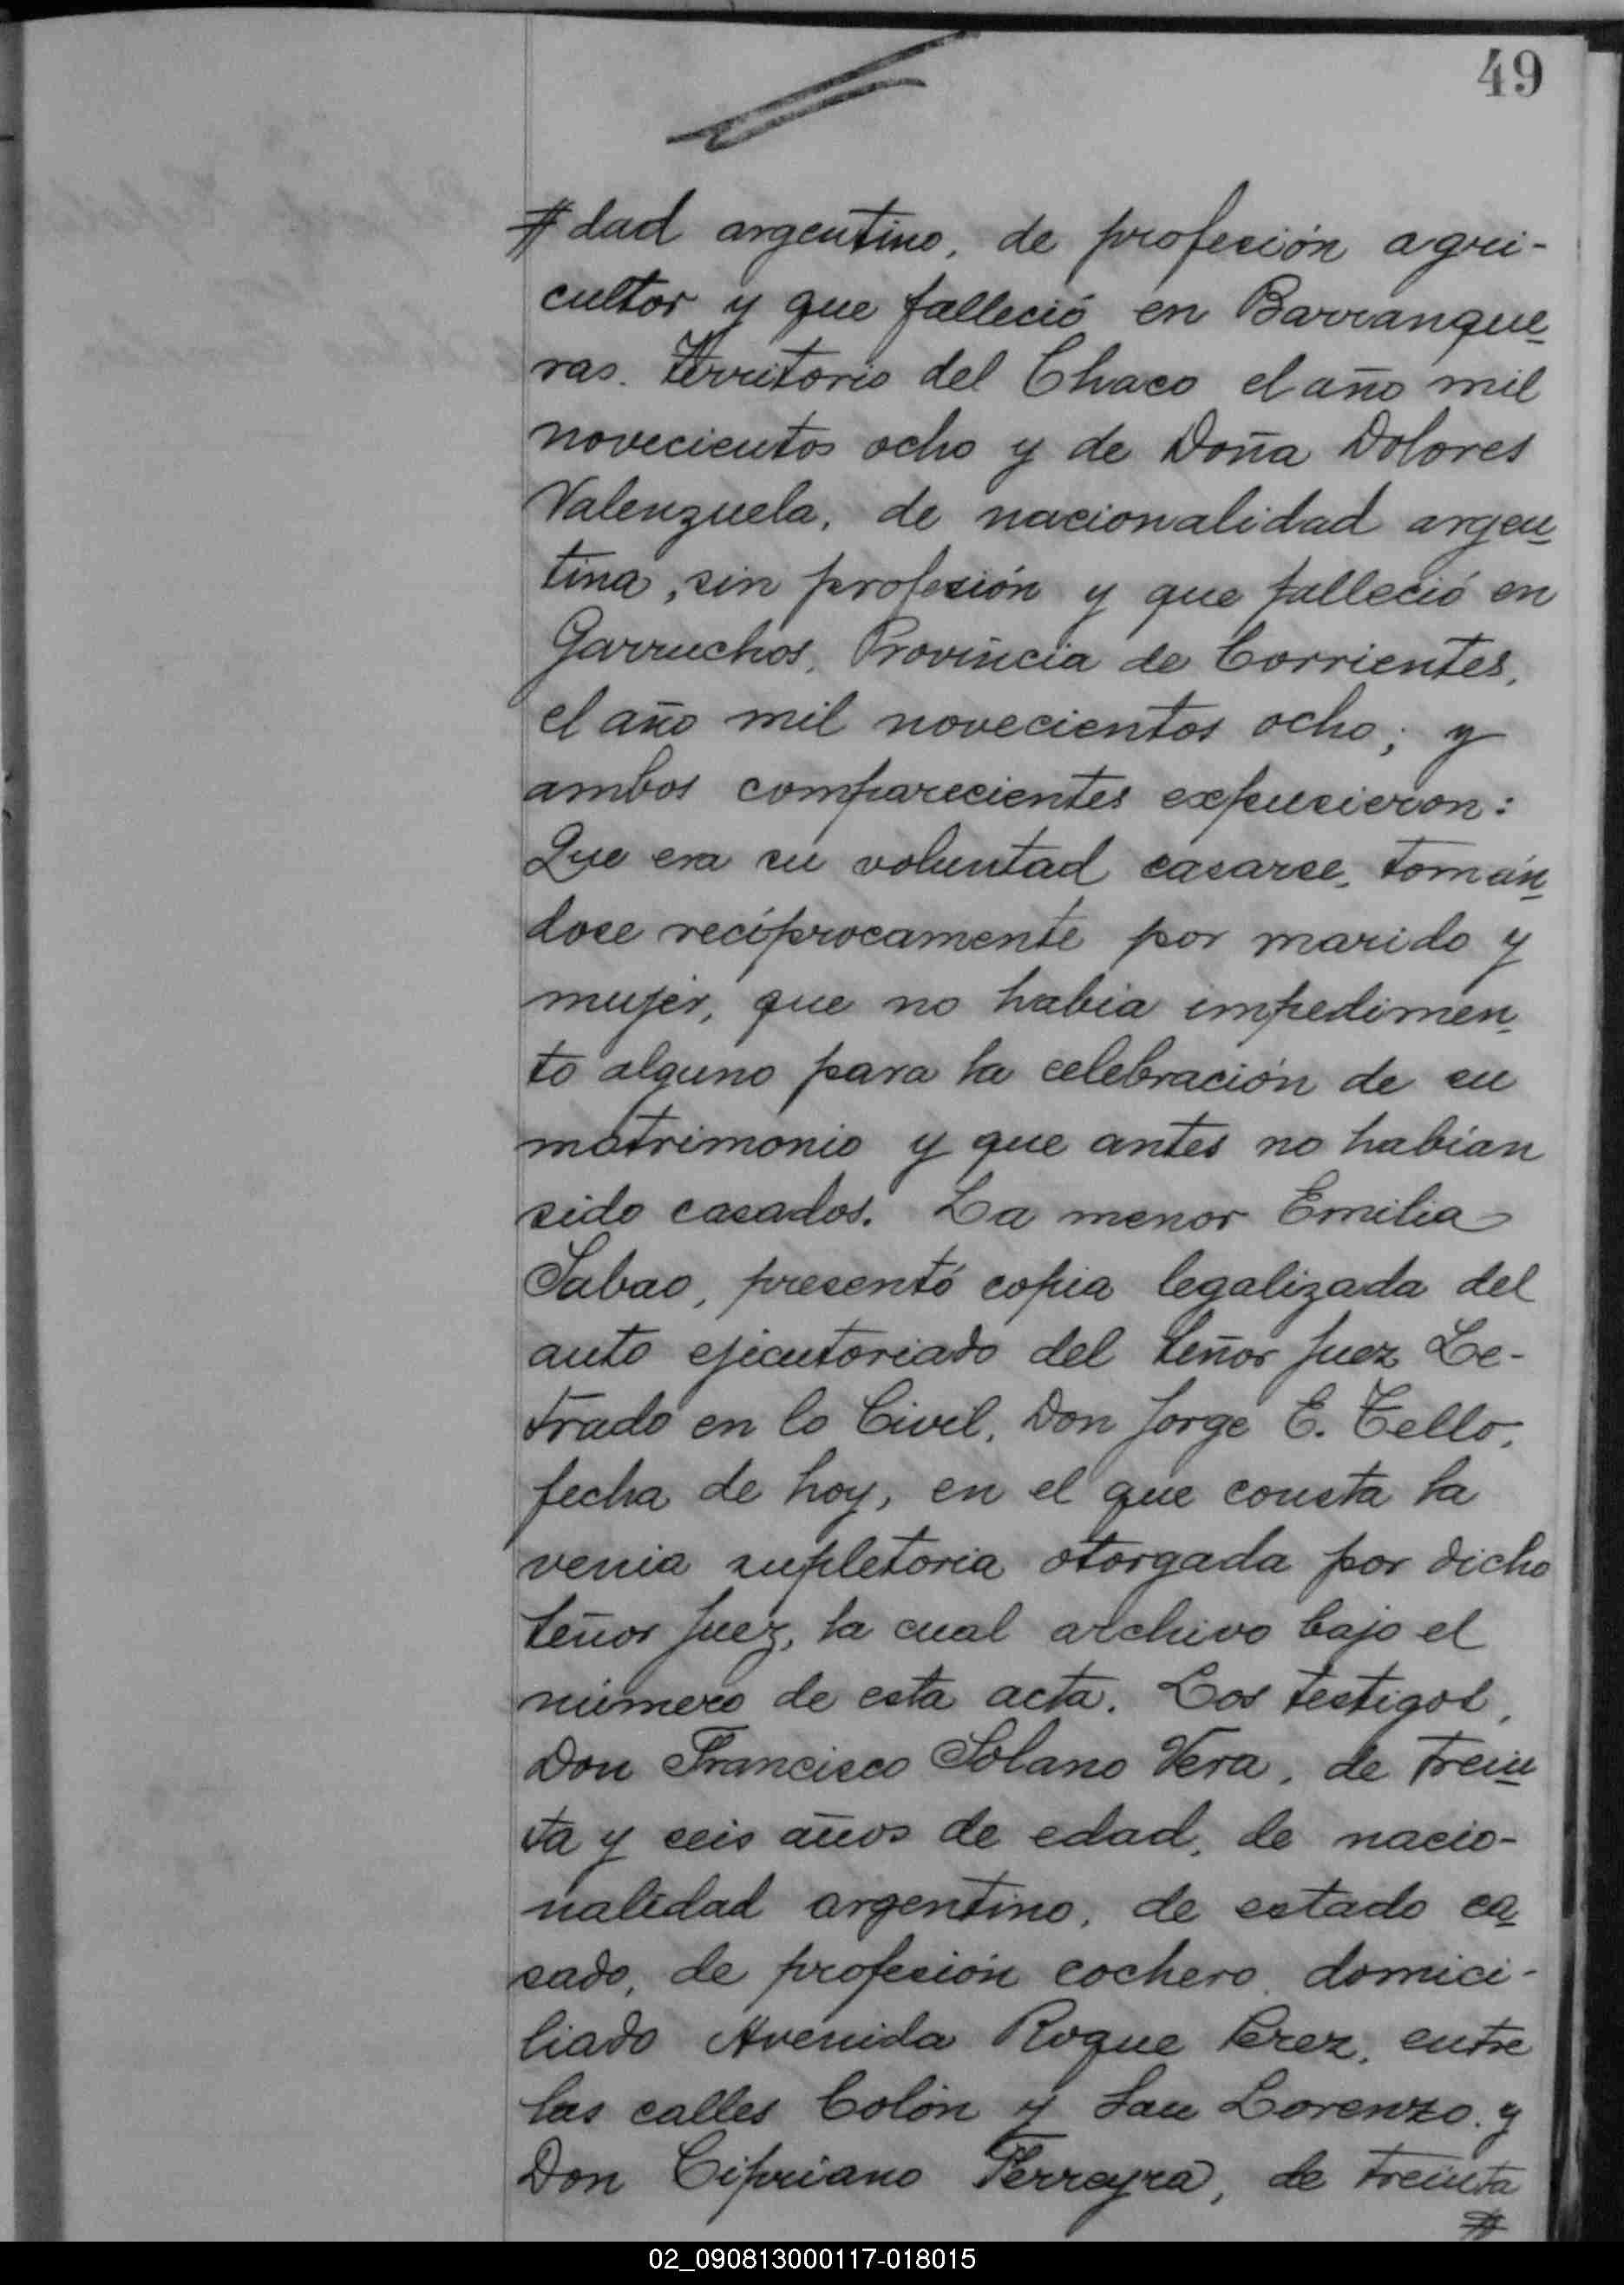 49
#dad argentino, de profesión agri-
cultor y que falleció en Barranque-
ras. Territorio del Chaco el año mil
novecientos ocho y de Doña Dolores
Valenzuela, de nacionalidad argen-
tina, sin profesión y que falleció en
Garruchos, Provincia de Corrientes,
el año mil novecientos ocho; y
ambos comparecientes expusieron:
Que era su voluntad casarse, tomán-
dose recíprocamente por marido y
mujer, que no habia impedimen-
to alguno para la celebración de su
matrimonio y que antes no habían
sido casados. La menor Emilia
Sabao, presentó copia legalizada del
auto ejecutoriado del Señor Juez Le-
trado en lo Civil, Don Jorge E. Tello,
fecha de hoy, en el que consta la
venia supletoria otorgada por dicho
Señor Juez, la cual archivo bajo el
número de esta acta. Los testigos,
Don Francisco Solano Vera, de trein-
ta y seis años de edad, de nacio-
nalidad argentino, de estado ca-
sado, de profesión cochero, domici-
liado Avenida Roque Perez, entre
las calles Colón y San Lorenzo, y
Don Cipriano Ferreyra, de treinta
#
02_090813000117-018015